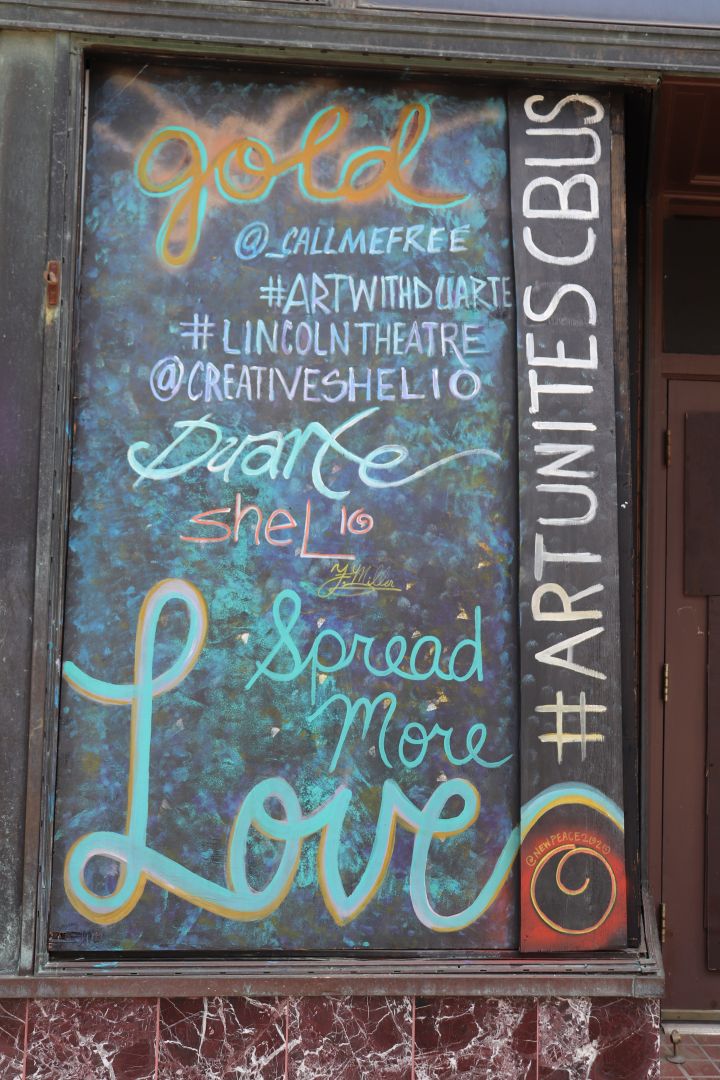 gold
@_CALLMEFREE
#ARTWITHDUARTE
#LINCOLNTHEATRE
@CREATIVESHEL10
Duarte
sheL10
Y. Miller
Spread
More
Love
#ARTUNITESCBUS
@NEWPEACE2020